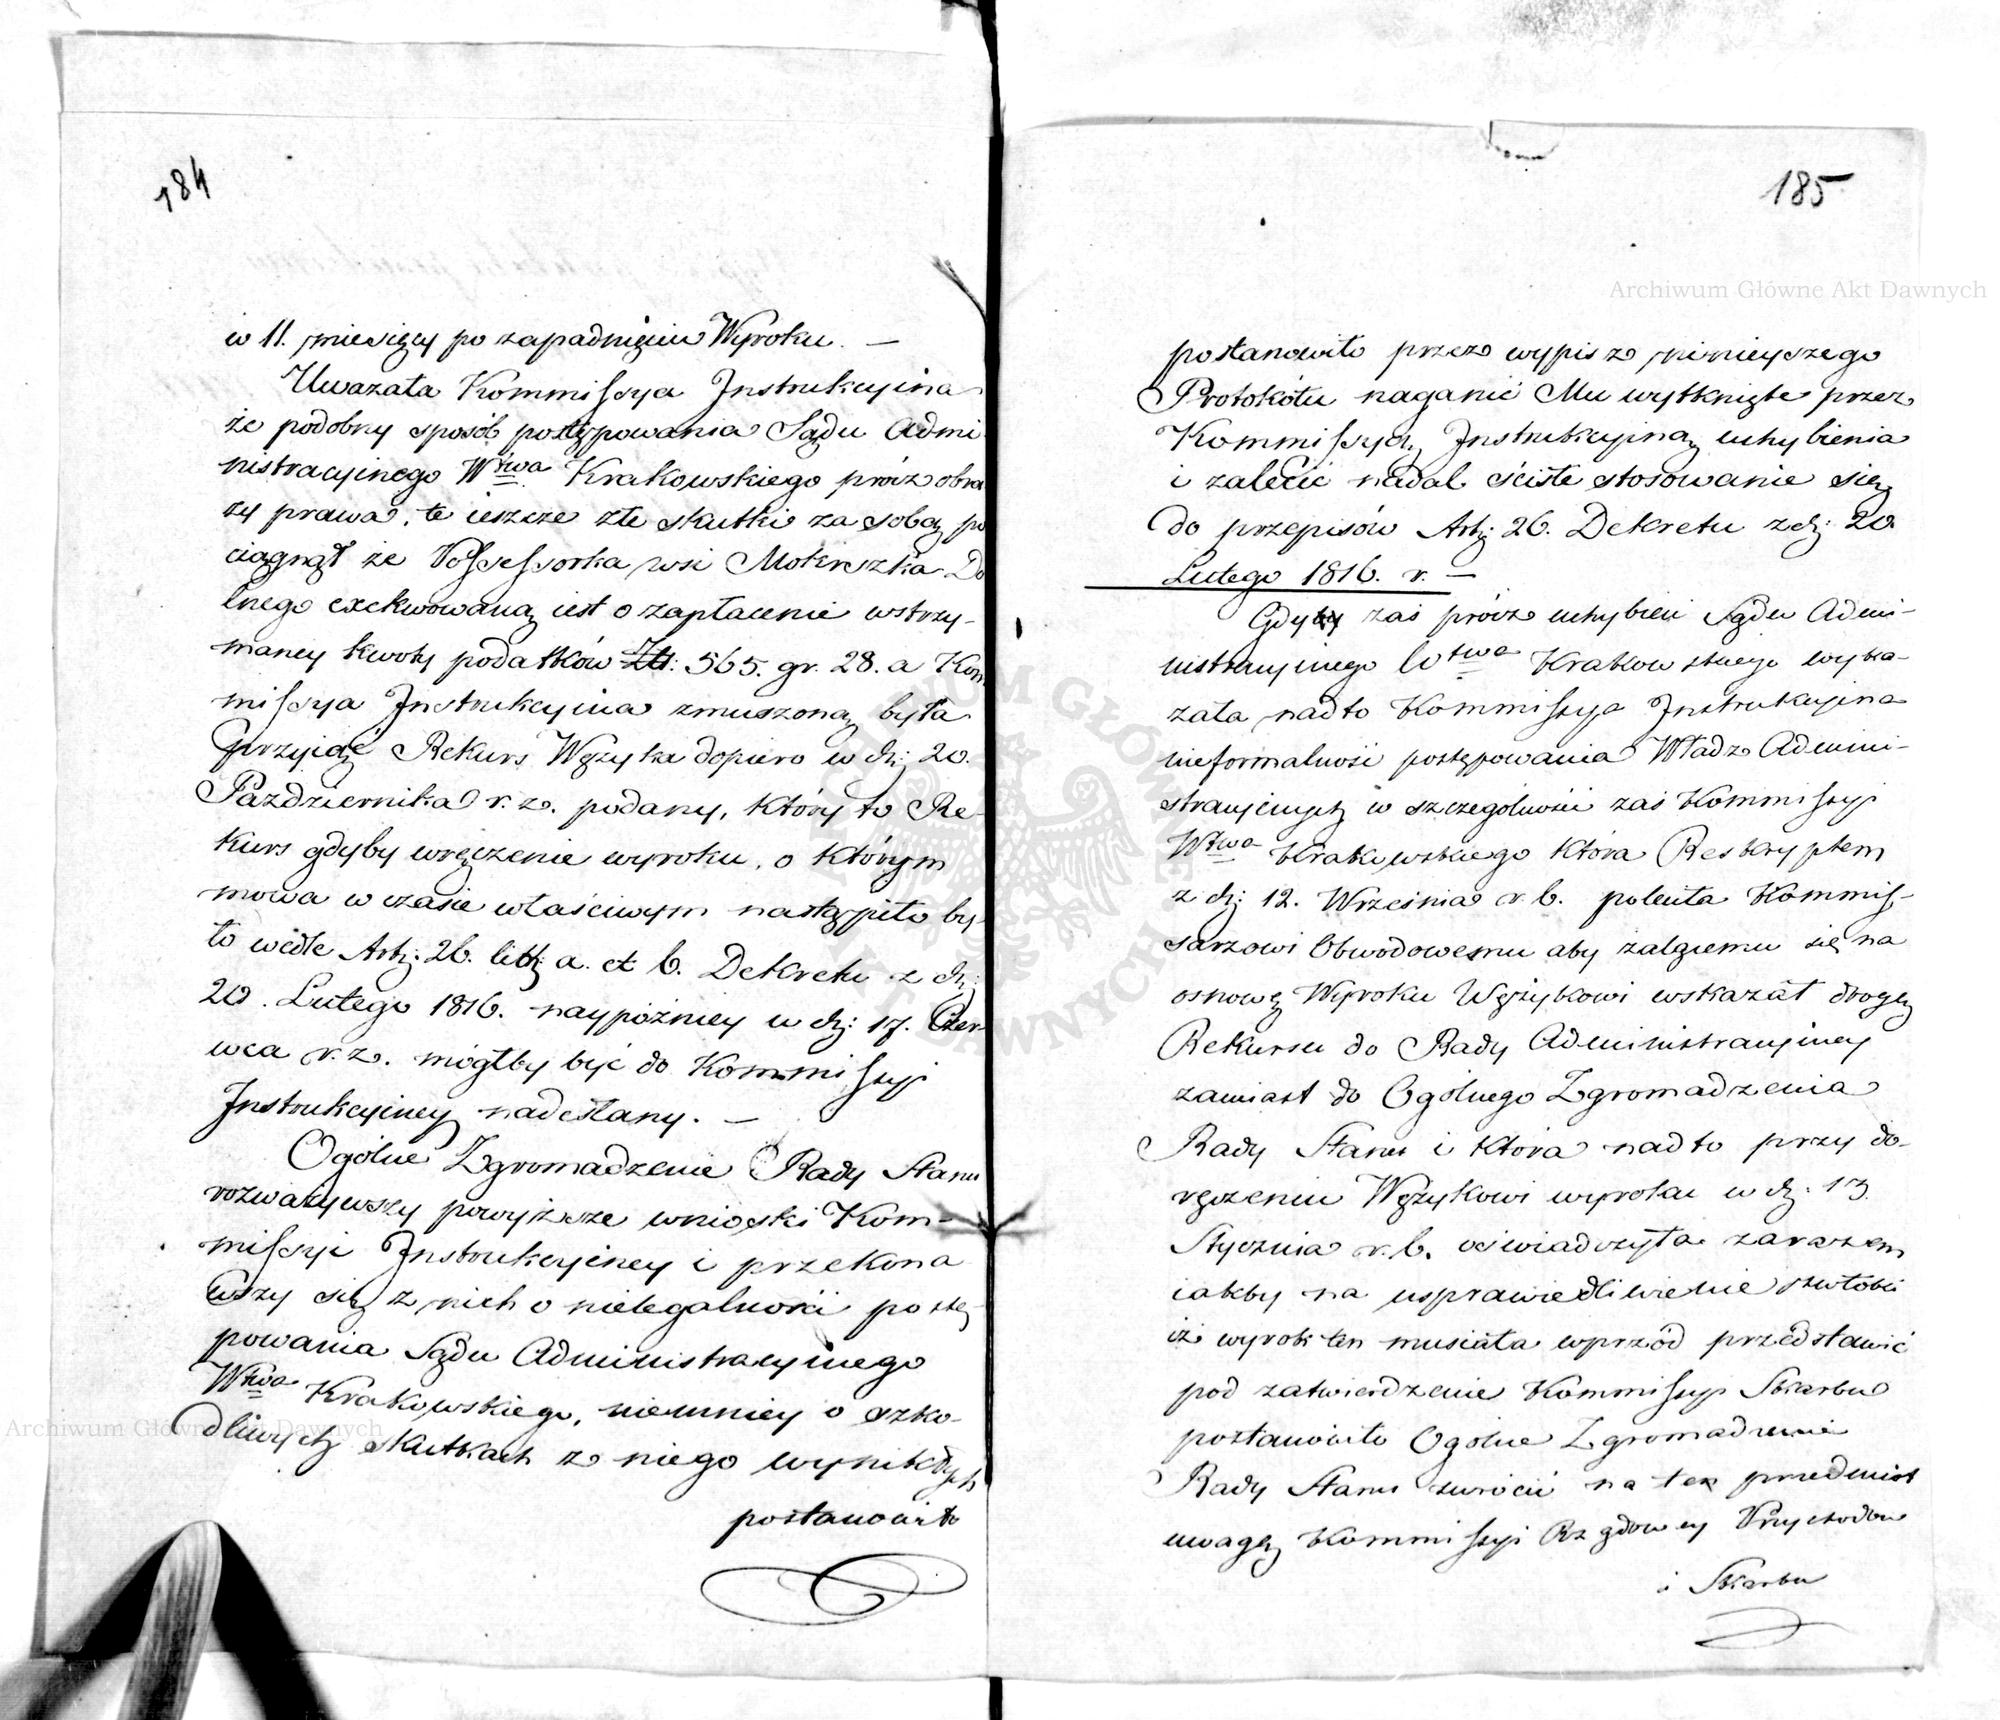 184
w 11. miesięcy po zapadnięciu Wyroku. —
Uważała Kommissya Instrukcyina
że podobny sposób postępowania Sądu Admi
nistracyinego Wtwa Krakowskiego prócz obra
zy prawa, te ieszcze złe skutki za sobą po
ciągnął że Possessorka wsi Mokrszka Do
lnego exekwowaną iest o zapłacenie wstrzy-
maney kwoty podatków Zł: 565. gr. 28. a Kom
missya Instrukcyina zmuszoną była
przyiąć Rekurs Wężyka dopiero w dn: 20.
Października r. z. podany, który to Re-
kurs gdyby wręczenie wyroku, o którym
mowa w czasie właściwym nastąpiło by-
ło wedle Art: 26. litt: a. et b. Dekretu z dn:
20. Lutego 1816. naypóźniey w dn: 17. Czer-
wca r. z. mógłby być do Kommissyi
Instrukcyiney nadesłany. —
Ogólne Zgromadzenie Rady Stanu
rozważywszy powyższe wnioski Kom-
missyi Instrukcyiney i przekona
wszy się z nich o nielegalności postę
powania Sądu Administracyinego
Wtwa Krakowskiego, niemniey o szko-
dliwych skutkach z niego wynikłych
postanowiło
185
postanowiło przez wypis z ninieyszego
Protokółu naganić Mu wytknięte przez
Kommissyą Instrukcyiną uchybienia
i zalecić nadal ściśłe stosowanie się
do przepisów Art: 26. Dekretu z d: 20
Lutego 1816. r. —
Gdy zaś prócz uchybień Sądu Admi-
nistracyinego Wtwa Krakowskiego wyka-
zała nadto Kommissya Instrukcyina
nieformalność postępowania Władz Admini-
stracyinych w szczególności zaś Kommissyi
Wtwa Krakowskiego która Reskryptem
z dn: 12. Września r. b. poleciła Kommis-
sarzowi Obwodowemu aby żalącemu się na
osnowę Wyroku Wężykowi wskazał drogę
Rekursu do Rady Administracyiney
zamiast do Ogólnego Zgromadzenia
Rady Stanu i która nadto przy do-
ręczeniu Wężykowi wyroku w d: 13.
Stycznia r. b. oświadczyła zarazem
iakby na usprawiedliwienie zwłoki
iż wyrok ten musiała wprzód przedstawić
pod zatwierdzenie Kommissyi Skarbu
postanowiło Ogólne Zgromadzenie
Rady Stanu zwrócić na ten przedmiot
uwagę Kommissyi Rządowey Przychodów
i Skarbu
Archiwum Główne Akt Dawnych
Archiwum Główne Akt Dawnych
ARCHIWUM GŁÓWNE AKT DAWNYCH